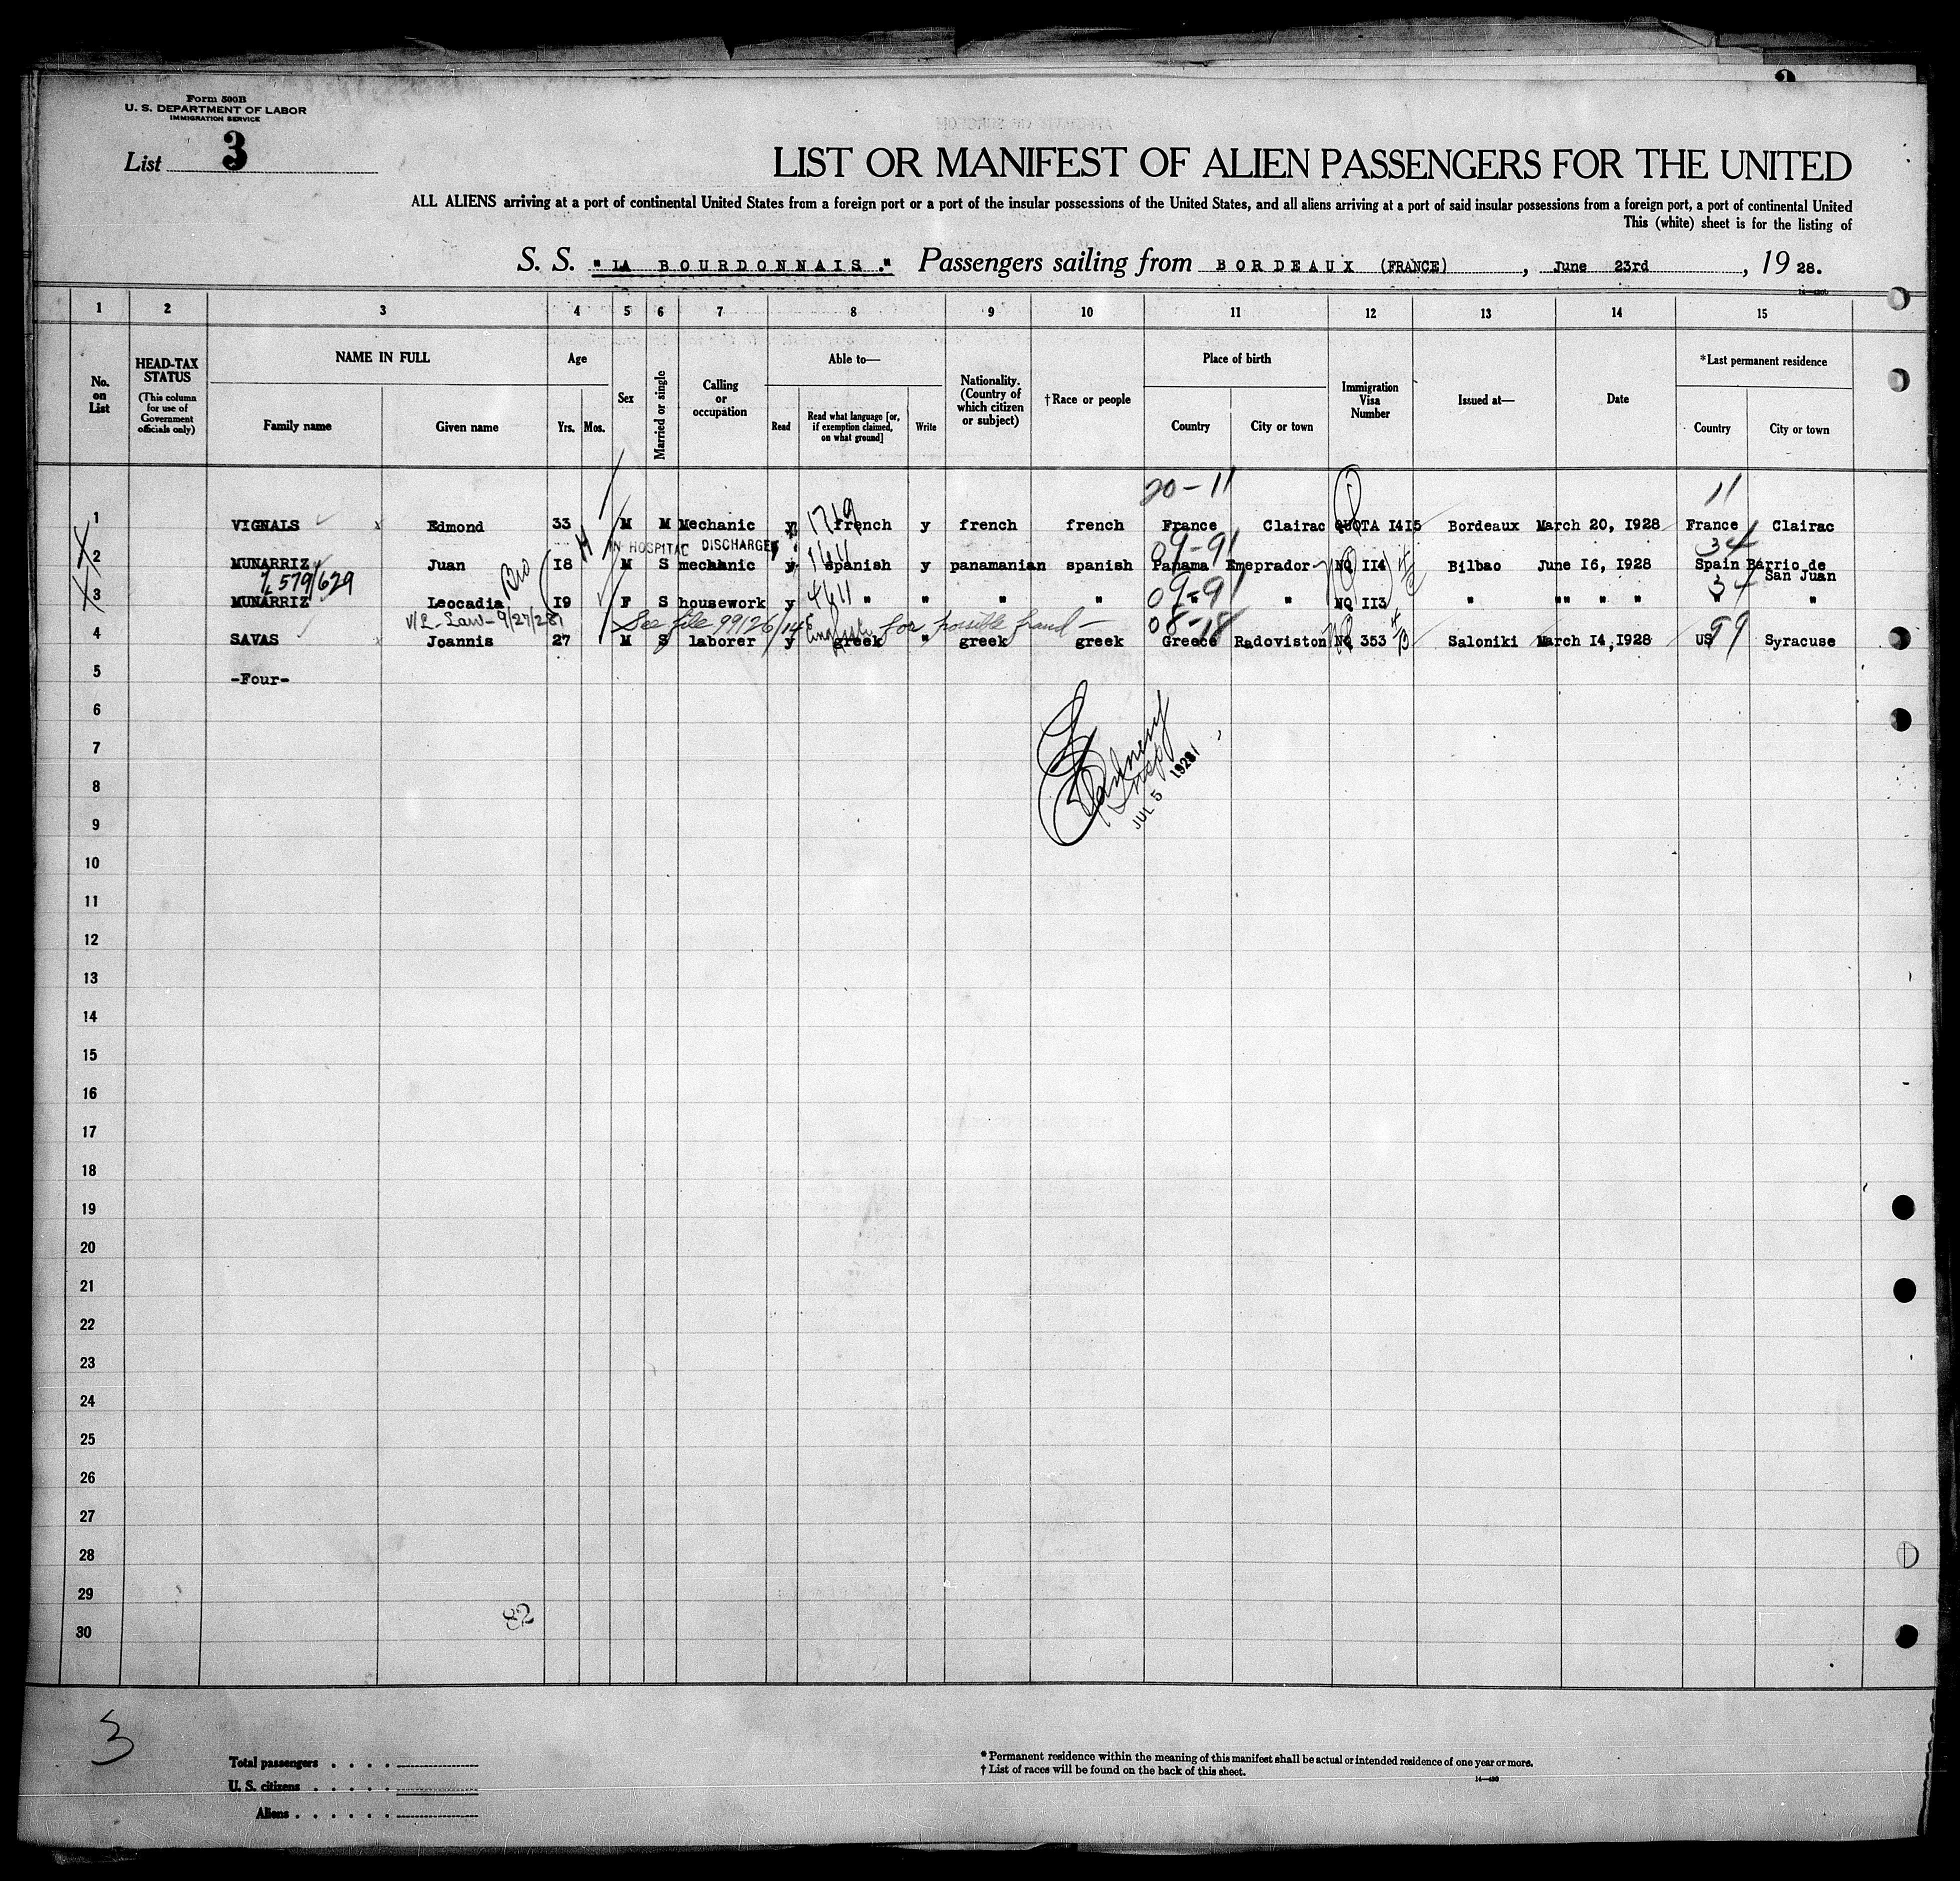 Form 500B
U. S. DEPARTMENT OF LABOR
IMMIGRATION SERVICE
List 3
LIST OR MANIFEST OF ALIEN PASSENGERS FOR THE UNITED
ALL ALIENS arriving at a port of continental United States from a foreign port or a port of the insular possessions of the United States, and all aliens arriving at a port of said insular possessions from a foreign port, a port of continental United
This (white) sheet is for the listing of
S. S. "LA BOURDONNAIS." Passengers sailing from BORDEAUX (FRANCE), June 23rd, 19 28.
1 2 3 4 5 6 7 8 9 10 11 12 13 14 15
No. on List
HEAD-TAX STATUS
(This column for use of Government officials only)
NAME IN FULL
Family name Given name
Age
Yrs. Mos.
Sex
Married or single
Calling or occupation
Able to—
Read Read what language [or, if exemption claimed, on what ground] Write
Nationality. (Country of which citizen or subject)
†Race or people
Place of birth
Country City or town
Immigration Visa Number
Issued at—
Date
*Last permanent residence
Country City or town
20-11 11
1 VIGNALS Edmond 33 M M Mechanic y french y french french France Clairac QUOTA 1415 Bordeaux March 20, 1928 France Clairac
IN HOSPITAL DISCHARGED 09-91 34
2 MUNARRIZ Juan 18 M S mechanic y spanish y panamanian spanish Panama Emeprador NQ 114 Bilbao June 16, 1928 Spain Barrio de San Juan
579/629 Bro 09-91 34
3 MUNARRIZ Leocadia 19 F S housework y " " " " " " NQ 113 " " " " " "
V/L - Law - 9/27/28 See file 99126/145 for possible fraud - 08-18 99
4 SAVAS Joannis 27 M S laborer y greek " greek greek Greece Radoviston NQ 353 Saloniki March 14, 1928 US Syracuse
5 -Four-
6
7
JUL 5 1928
8
9
10
11
12
13
14
15
16
17
18
19
20
21
22
23
24
25
26
27
28
29
82
30
3
Total passengers
U. S. citizens
Aliens
* Permanent residence within the meaning of this manifest shall be actual or intended residence of one year or more.
† List of races will be found on the back of this sheet.